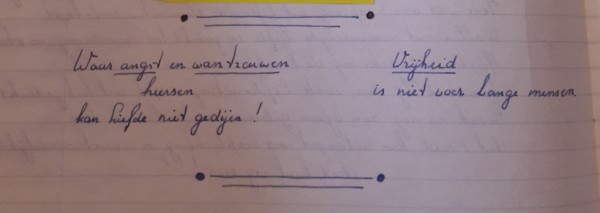 Waar angst en wantrouwen
heersen
kan liefde niet gedijen !
Vrijheid
is niet voor bange mensen